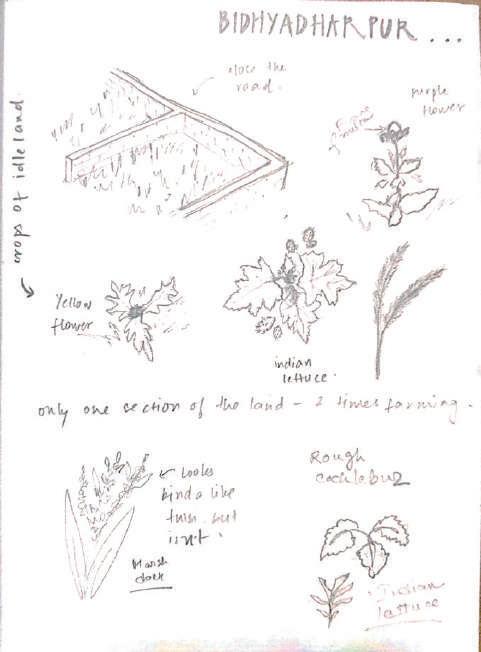 BIDHYADHARPUR...
close the
road.
purple
flower
crops of idle land
Yellow
flower
indian
lettuce.
only one section of the land - 2 times farming.
Looks
kinda like
but
isn't.
Marsh
dock
Rough
cocklebur
Indian
lettuce